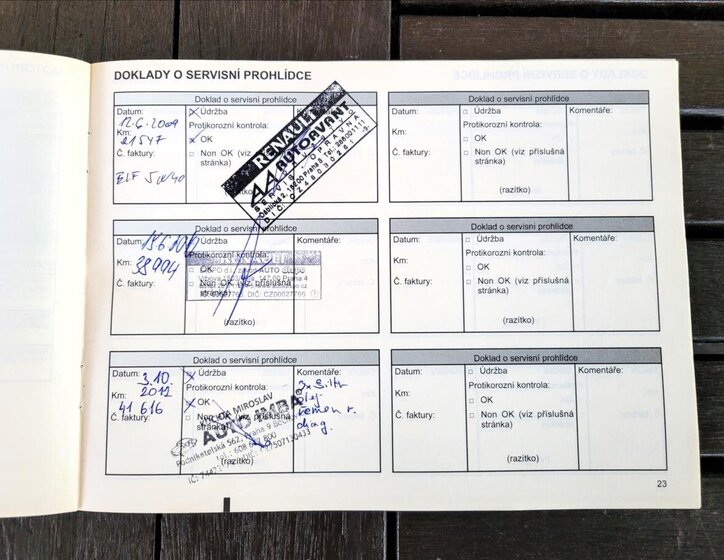 DOKLADY O SERVISNÍ PROHLÍDCE
Doklad o servisní prohlídce
Datum: Údržba
12.6.2009 Protikorozní kontrola:
Km: OK
21547 Non OK (viz příslušná
Č. faktury: stránka)
ELF 5W40
RENAULT
AUTOAVANT
Doklad o servisní prohlídce
Údržba
Komentáře:
Datum:
Protikorozní kontrola:
Km:
OK
Č. faktury:
Non OK (viz příslušná
stránka)
(razítko)
Doklad o servisní prohlídce
Datum: Údržba Komentáře:
Protikorozní kontrola:
Km: OK
38994 Non OK (viz příslušná
Č. faktury: stránka)
RENAULT
(razítko)
Doklad o servisní prohlídce
Datum: Údržba Komentáře:
Protikorozní kontrola:
Km: OK
Č. faktury: Non OK (viz příslušná
stránka)
(razítko)
Doklad o servisní prohlídce
Datum: Údržba Komentáře:
3.10. Protikorozní kontrola:
2012
Km: OK
41 616 Non OK (viz příslušná
Č. faktury: stránka)
MIROSLAV
AUTO IMBA
Podnikatelská 562, Praha 9
Doklad o servisní prohlídce
Datum: Údržba Komentáře:
Protikorozní kontrola:
Km: OK
Č. faktury: Non OK (viz příslušná
stránka)
(razítko)
23